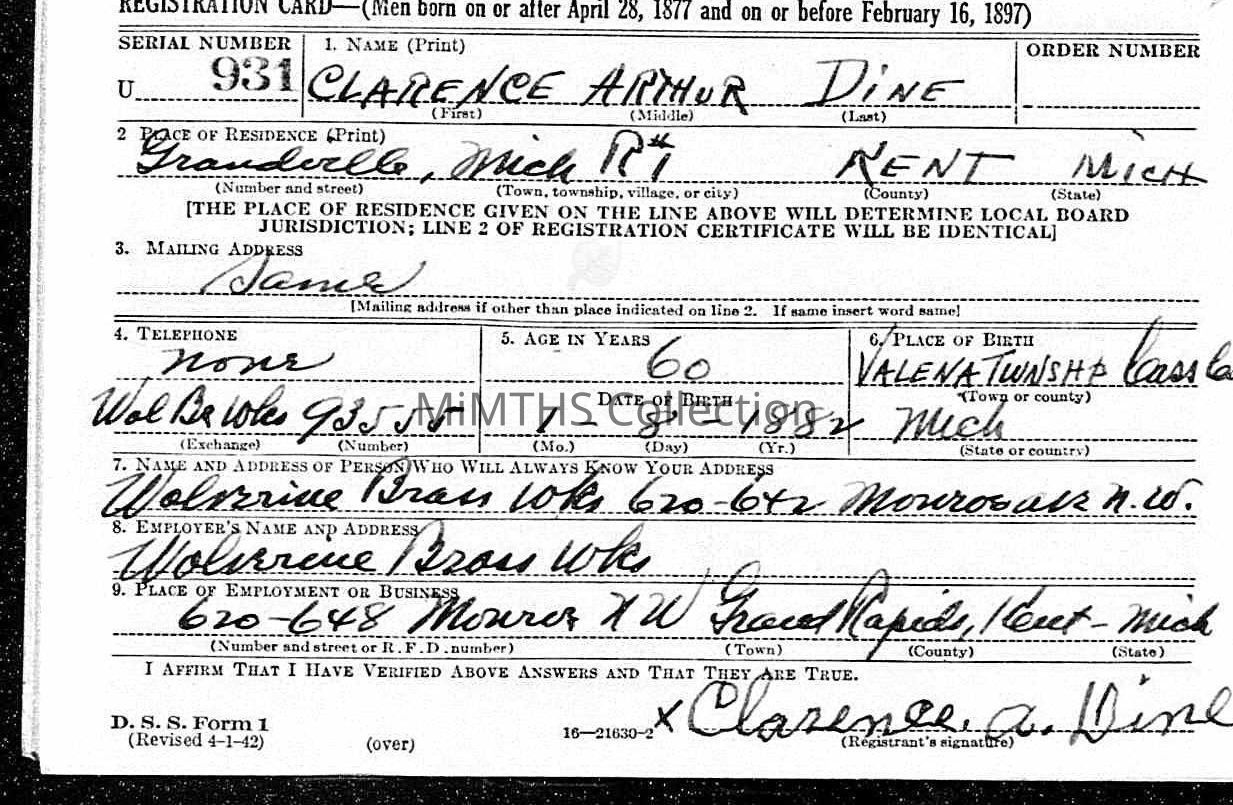 REGISTRATION CARD—(Men born on or after April 28, 1877 and on or before February 16, 1897)
SERIAL NUMBER 1. NAME (Print) ORDER NUMBER
U 931 CLARENCE ARTHUR DINE
(First) (Middle) (Last)
2 PLACE OF RESIDENCE (Print)
Grandville, Mich R#1 KENT MICH
(Number and street) (Town, township, village, or city) (County) (State)
[THE PLACE OF RESIDENCE GIVEN ON THE LINE ABOVE WILL DETERMINE LOCAL BOARD
JURISDICTION; LINE 2 OF REGISTRATION CERTIFICATE WILL BE IDENTICAL]
3. MAILING ADDRESS
Same
[Mailing address if other than place indicated on line 2. If same insert word same]
4. TELEPHONE 5. AGE IN YEARS 6. PLACE OF BIRTH
none 60 VALENA TWNSHP Cass Co
DATE OF BIRTH (Town or county)
Wol Br Wks 93555 1-8-1882 Mich
(Exchange) (Number) (Mo.) (Day) (Yr.) (State or country)
MiMTHS Collection
7. NAME AND ADDRESS OF PERSON WHO WILL ALWAYS KNOW YOUR ADDRESS
Wolverine Brass Wks 620-642 Monroe ave N.W.
8. EMPLOYER'S NAME AND ADDRESS
Wolverine Brass Wks
9. PLACE OF EMPLOYMENT OR BUSINESS
620-648 Monroe N W Grand Rapids, Kent - Mich
(Number and street or R. F. D. number) (Town) (County) (State)
I AFFIRM THAT I HAVE VERIFIED ABOVE ANSWERS AND THAT THEY ARE TRUE.
D. S. S. Form 1
(Revised 4-1-42) (over) 16—21630-2 X Clarence. A. Dine
(Registrant's signature)